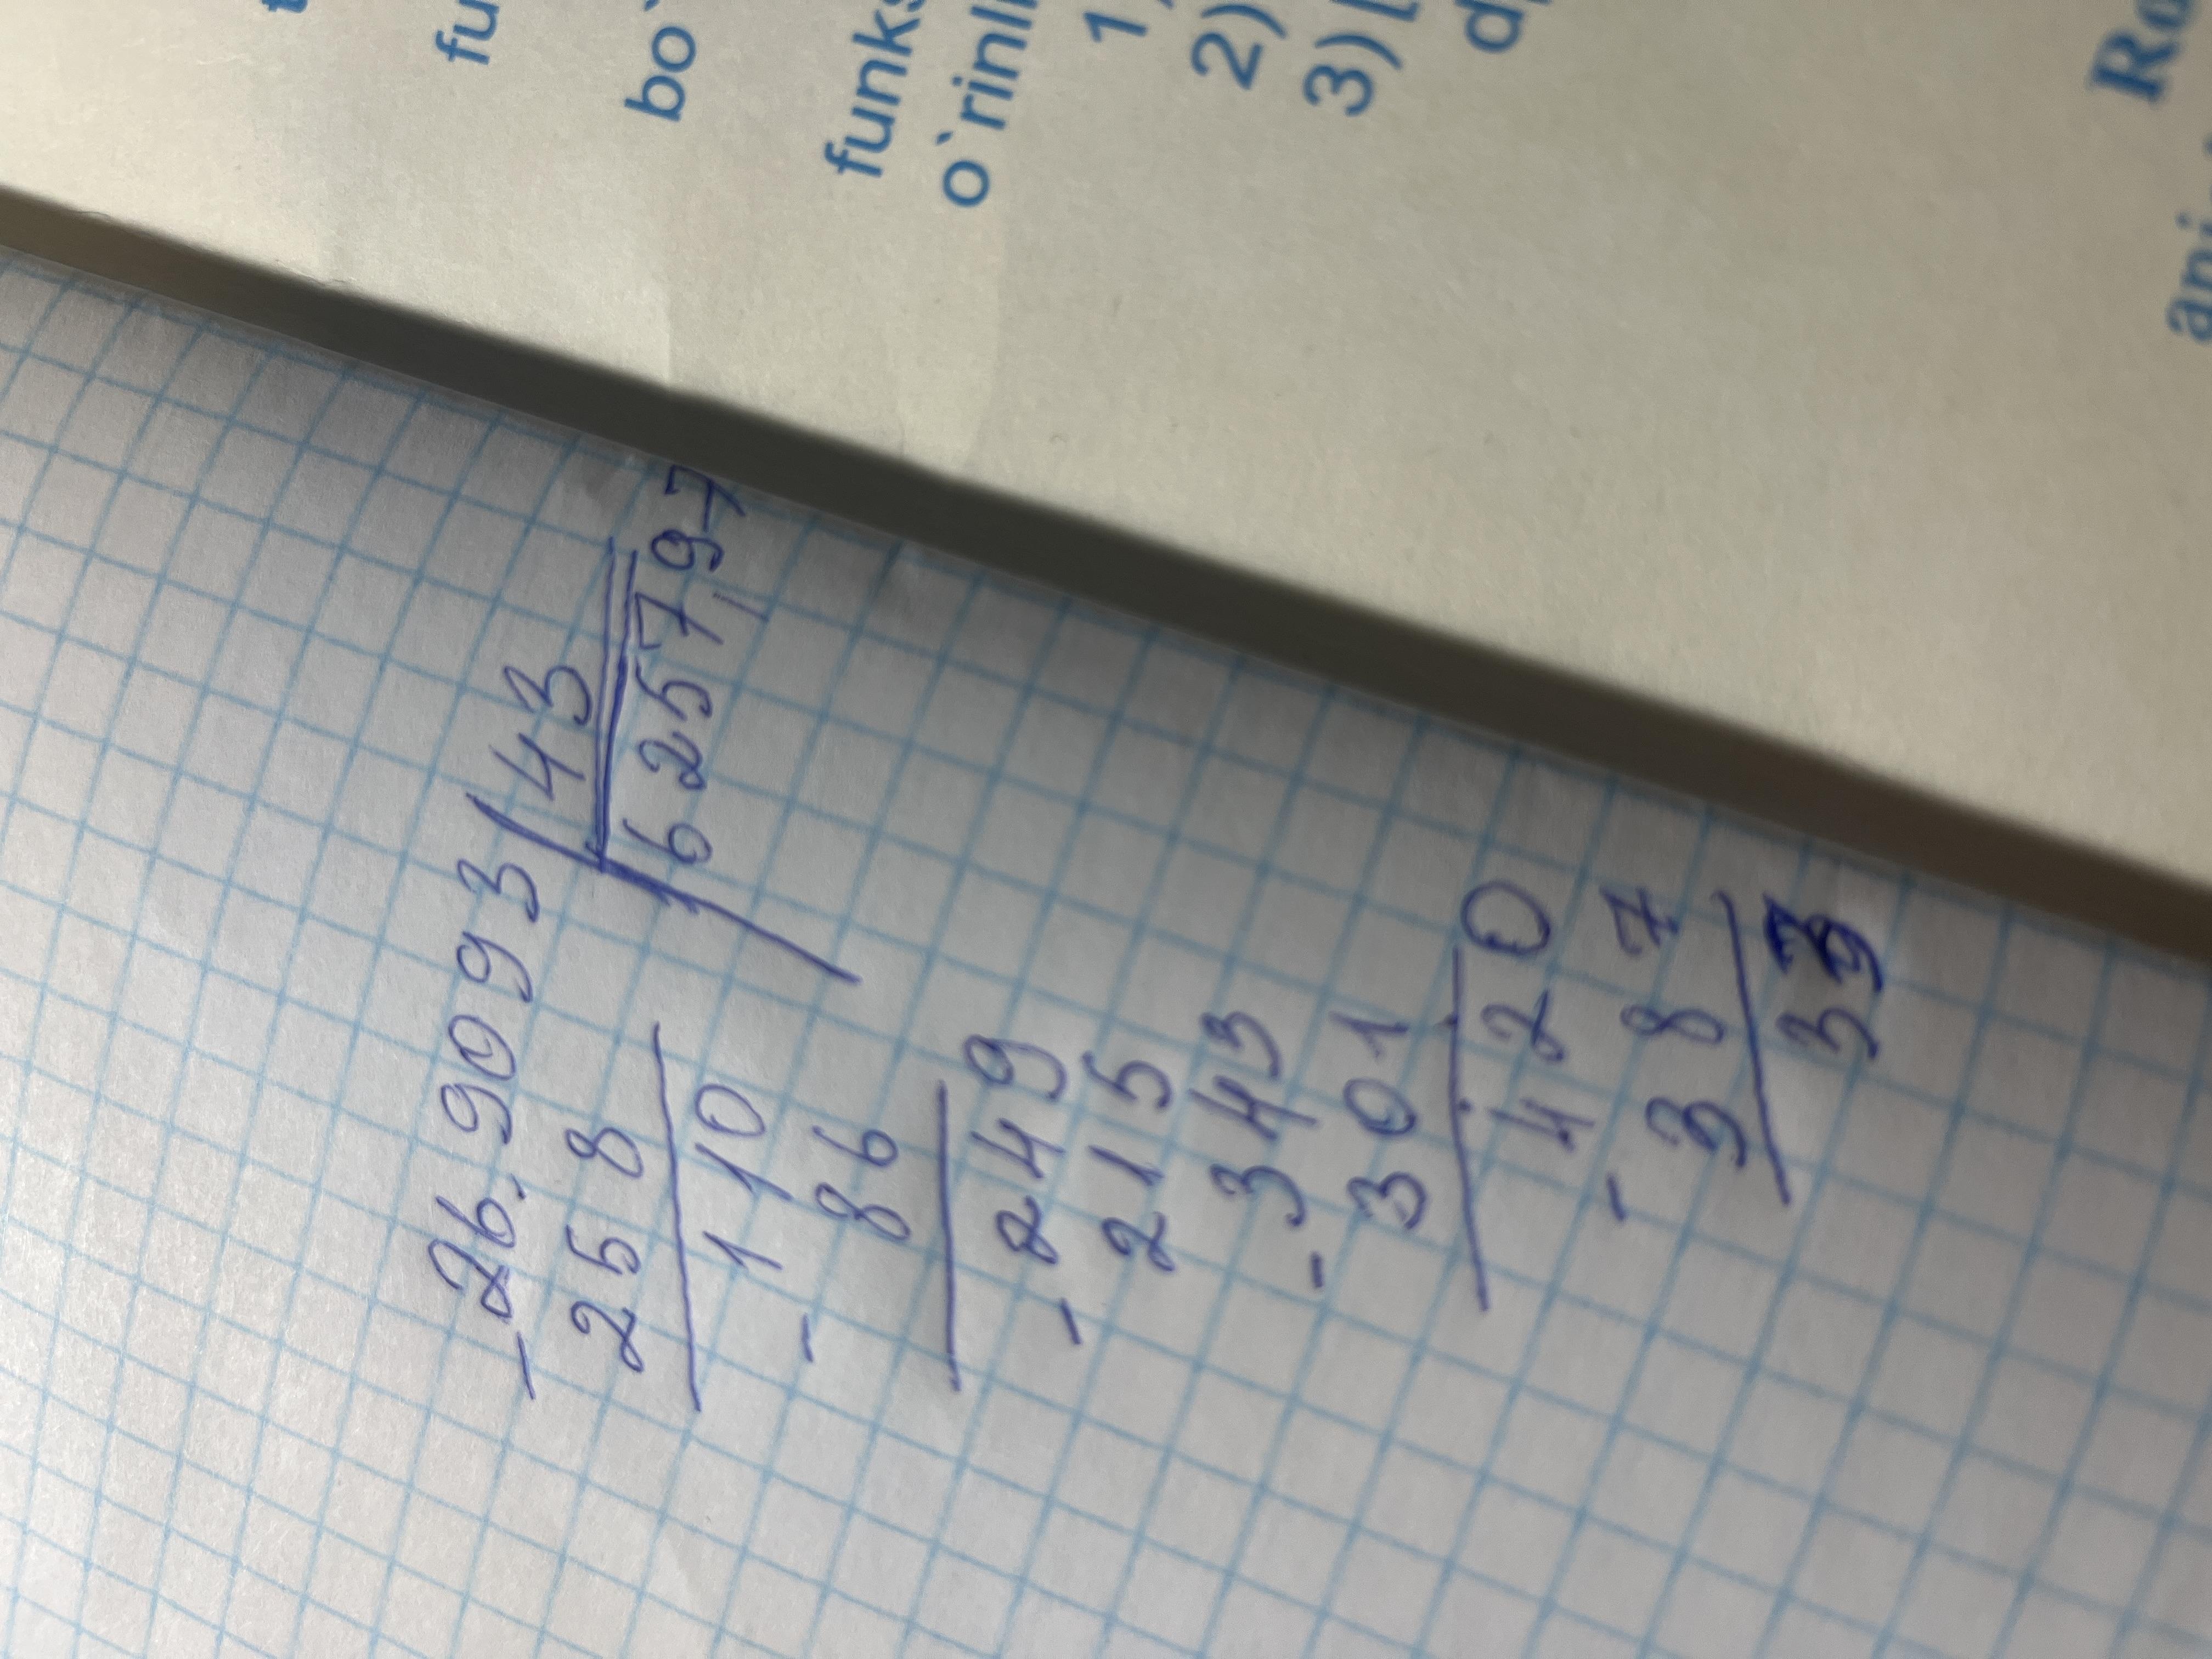 fu
bo`
funks
o`rinli
1)
2)
3) [
Ro
- 26.9093 | 43
258
6257,97
110
- 86
249
- 215
343
- 301
420
- 387
33